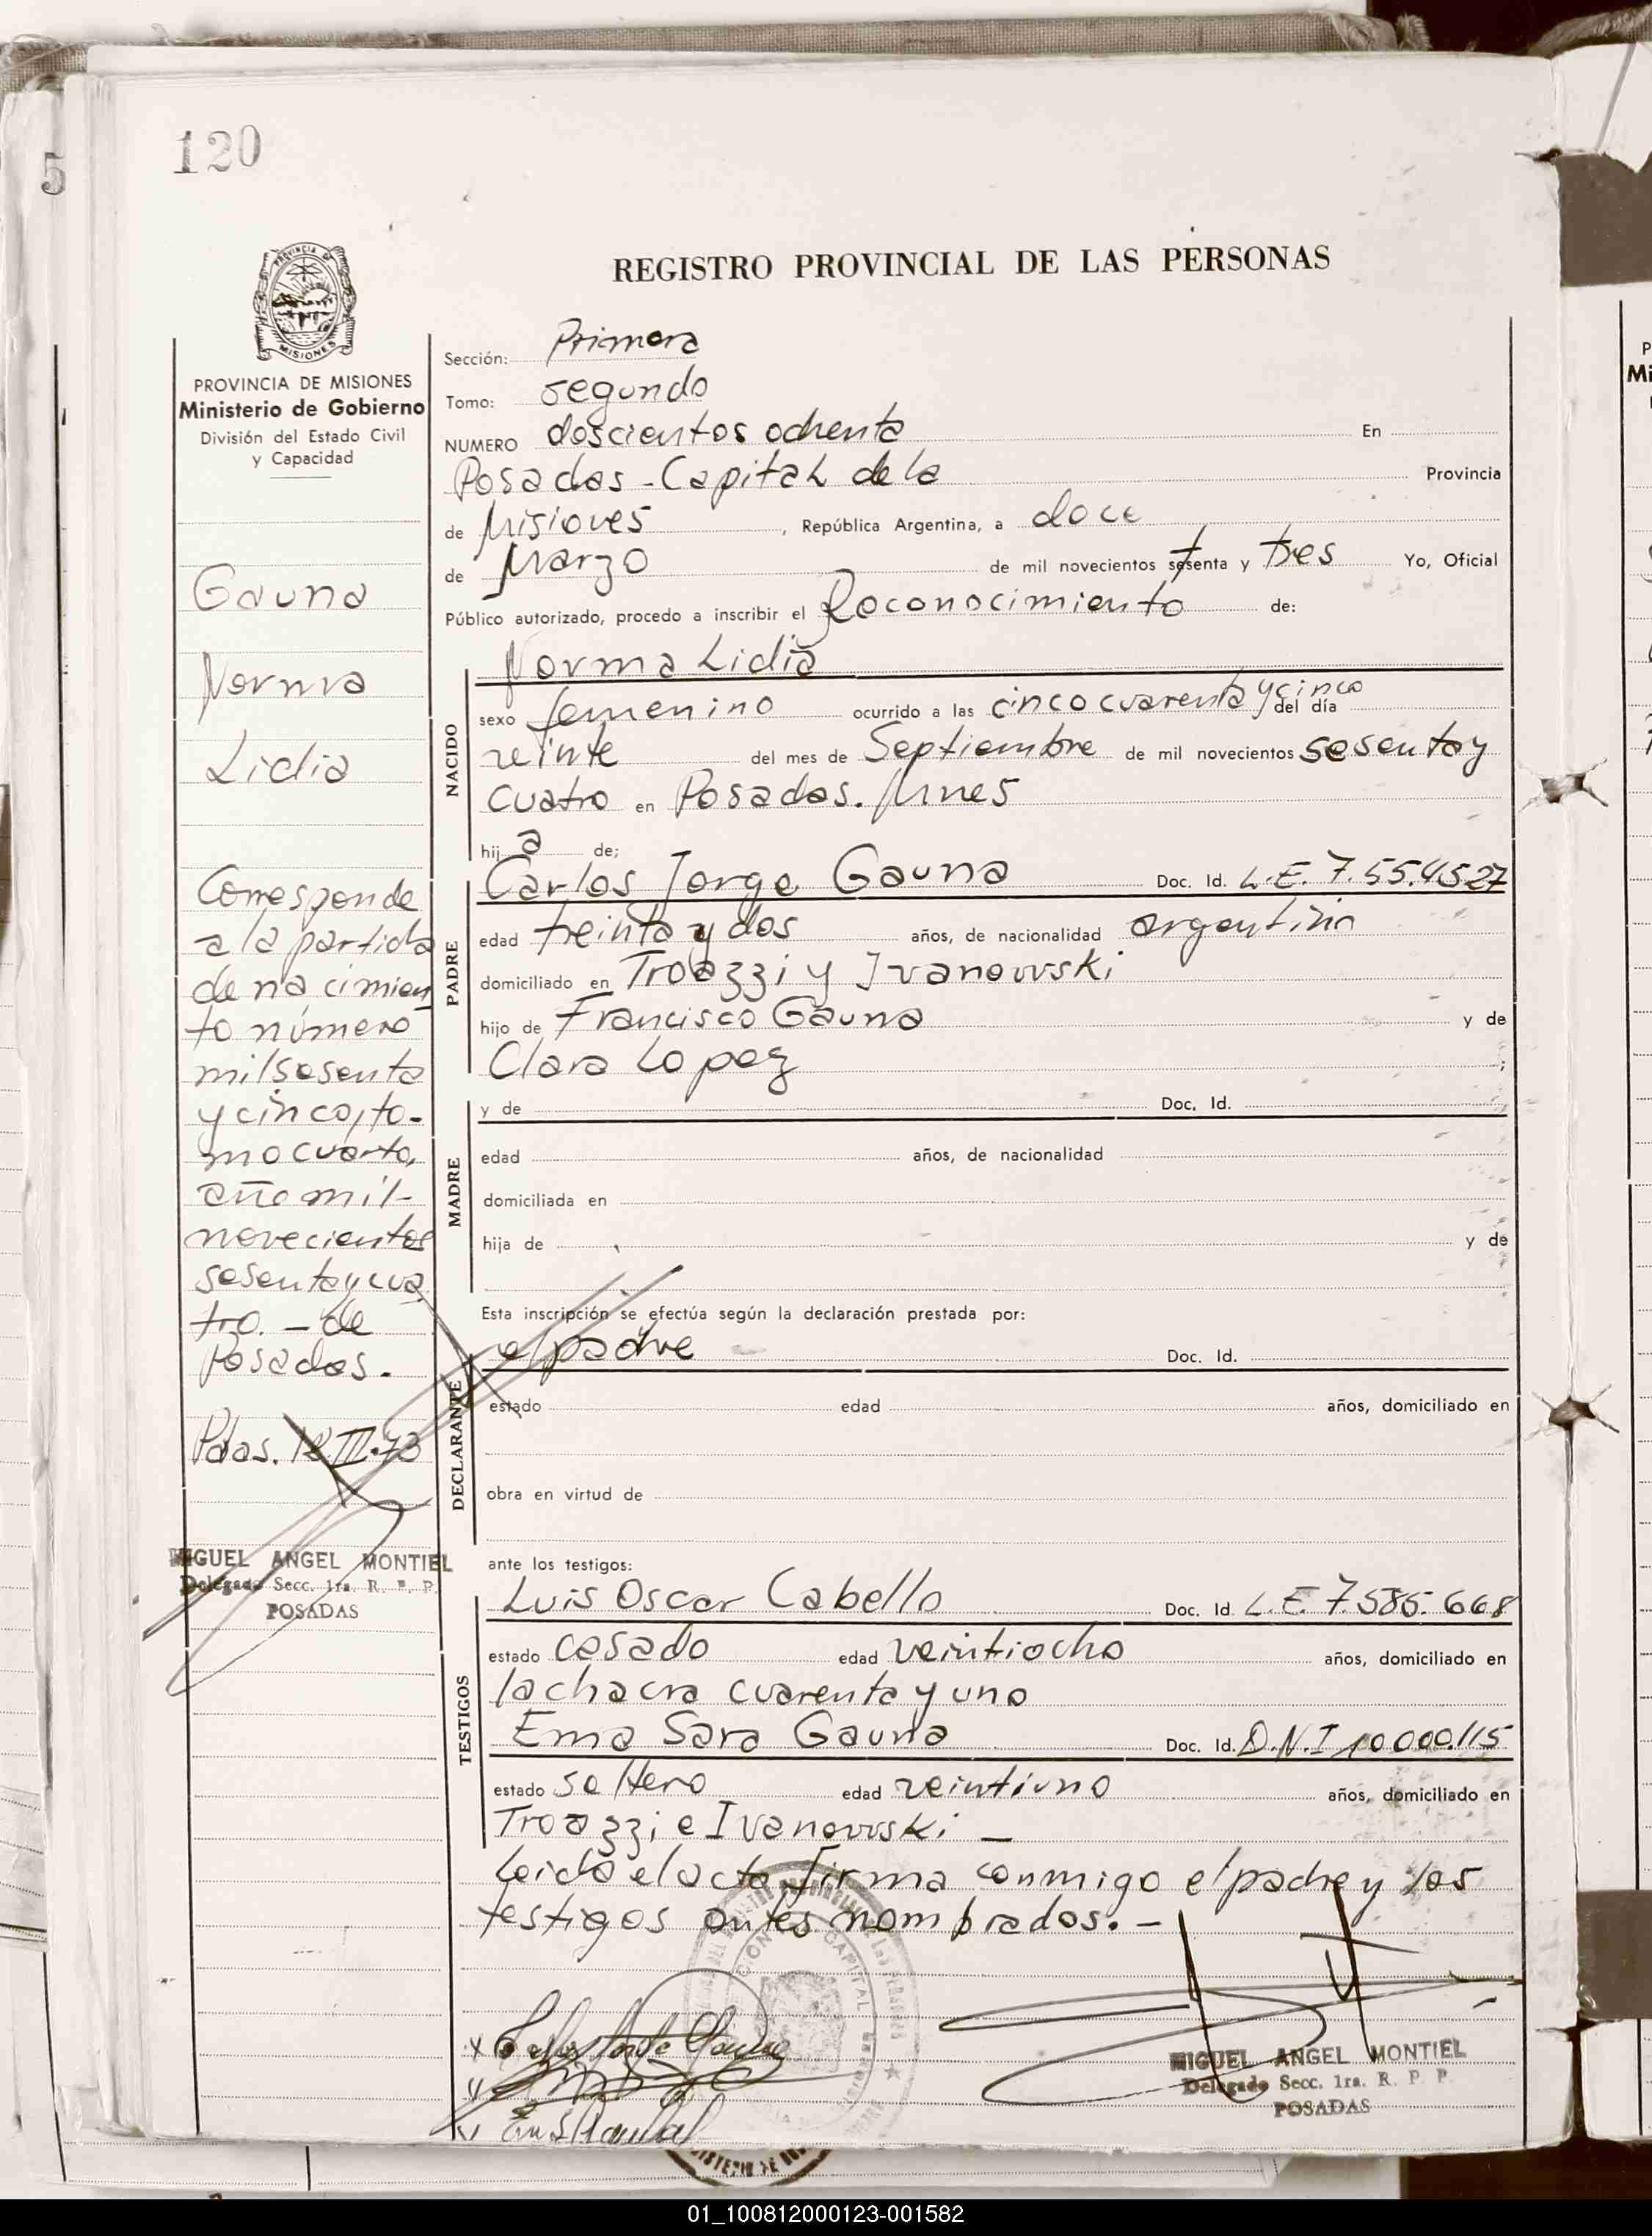 120
5
REGISTRO PROVINCIAL DE LAS PERSONAS
PROVINCIA DE MISIONES
Ministerio de Gobierno
División del Estado Civil
y Capacidad
Gauna
Norma
Lidia
Corresponde
a la partida
de nacimien
to número
mil sesenta
y cinco, to-
mo cuarto,
año mil-
novecientos
sesenta y cua
tro. - de
Posadas.
Pdas. 12.III.73
MIGUEL ANGEL MONTIEL
Delegado Secc. 1ra. R. P. P.
POSADAS
Sección: Primera
Tomo: segundo
NUMERO doscientos ochenta En
Posadas - Capital de la Provincia
de Misiones, República Argentina, a doce
de Marzo de mil novecientos setenta y tres Yo, Oficial
Público autorizado, procedo a inscribir el Reconocimiento de:
NACIDO
Norma Lidia
sexo femenino ocurrido a las cinco cuarenta y cinco del día
veinte del mes de Septiembre de mil novecientos sesenta y
cuatro en Posadas. Mnes
hij a de;
PADRE
Carlos Jorge Gauna Doc. Id. L.E. 7.554.527
edad treinta y dos años, de nacionalidad argentino
domiciliado en Troazzi y Ivanowski
hijo de Francisco Gauna y de
Clara Lopez ;
MADRE
y de Doc. Id.
edad años, de nacionalidad
domiciliada en
hija de y de
DECLARANTE
Esta inscripción se efectúa según la declaración prestada por:
el padre Doc. Id.
estado edad años, domiciliado en
obra en virtud de
ante los testigos:
TESTIGOS
Luis Oscar Cabello Doc. Id. L.E. 7.585.668
estado casado edad veintiocho años, domiciliado en
la chacra cuarenta y uno
Ema Sara Gauna Doc. Id. D.N.I 10000.115
estado soltero edad veintiuno años, domiciliado en
Troazzi e Ivanowski -
Leida el acta firma conmigo el padre y los
testigos antes nombrados. -
MIGUEL ANGEL MONTIEL
Delegado Secc. 1ra. R. P. P.
POSADAS
01_100812000123-001582